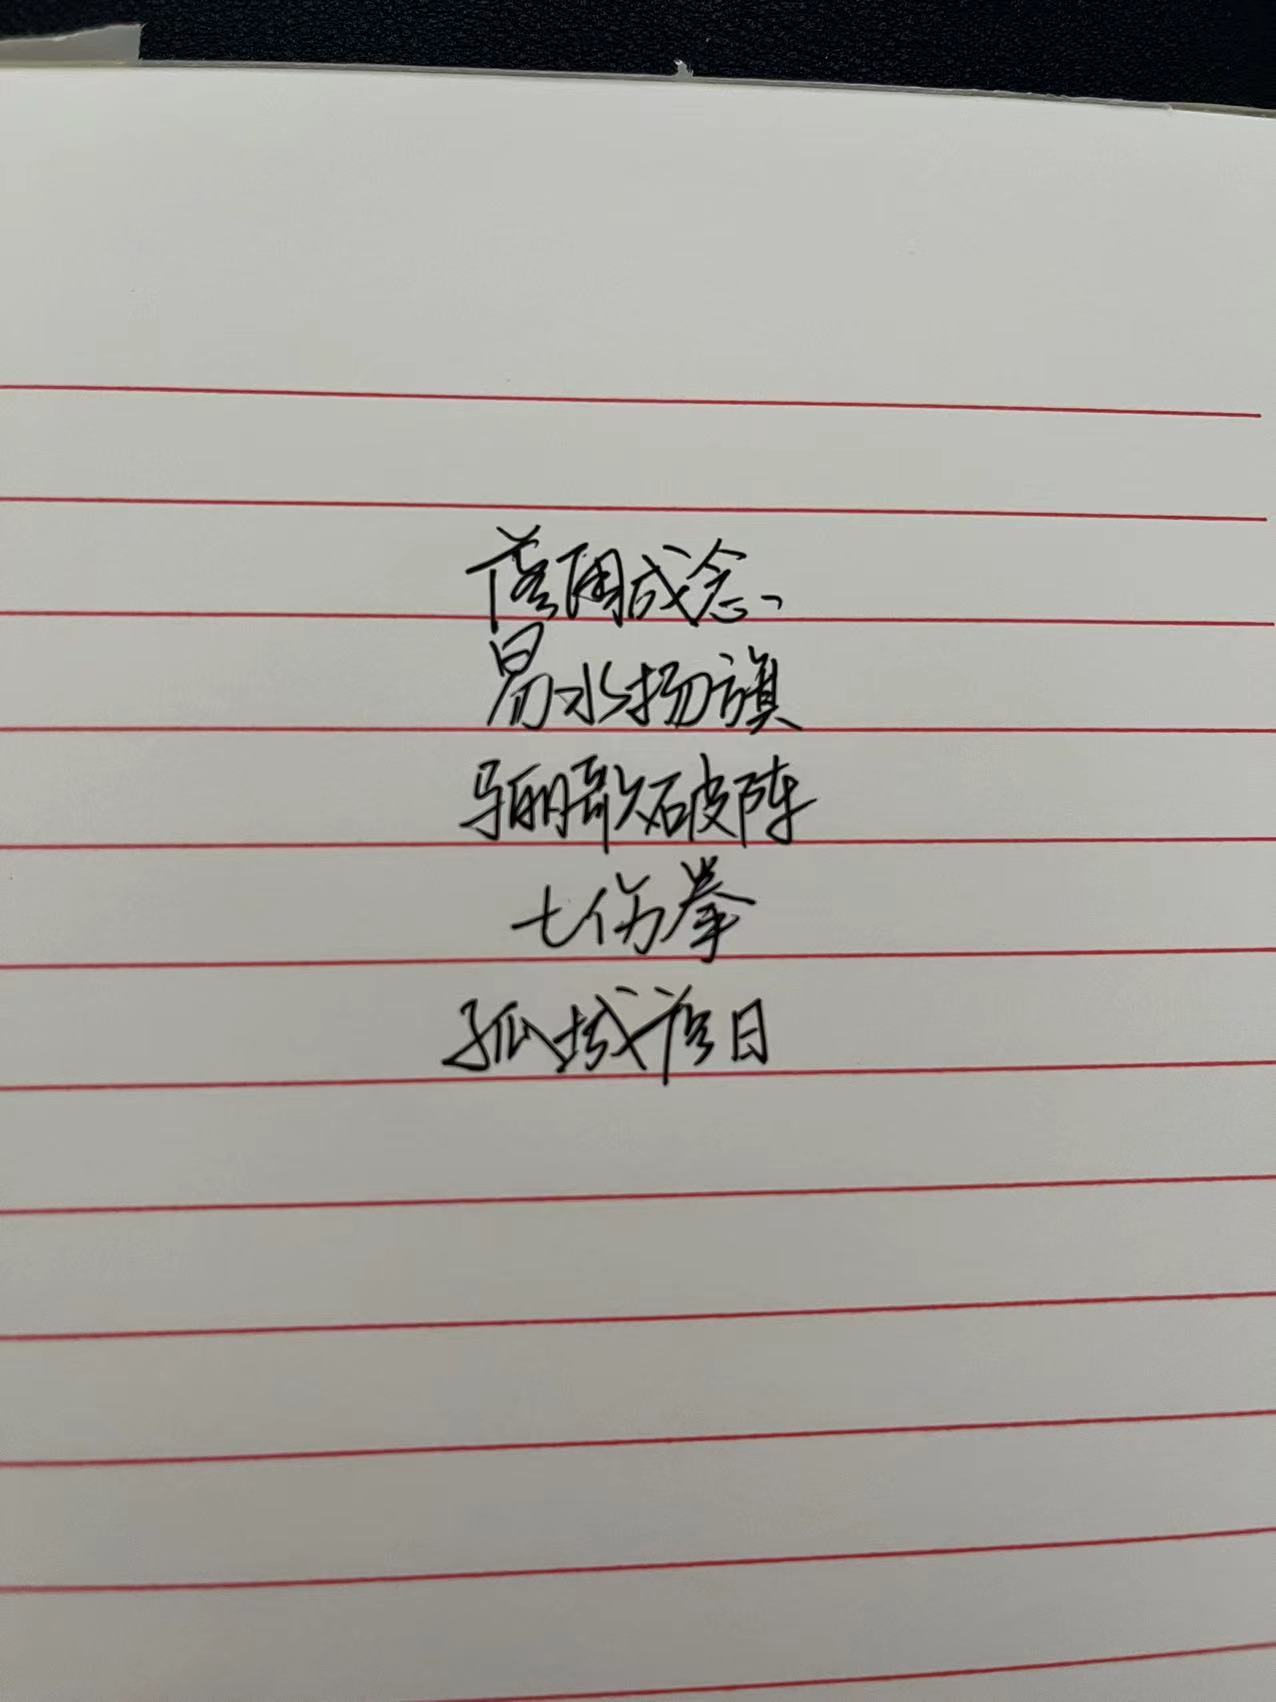 落困成念、
易水扬旗
骊歌破阵
七伤拳
孤城落日